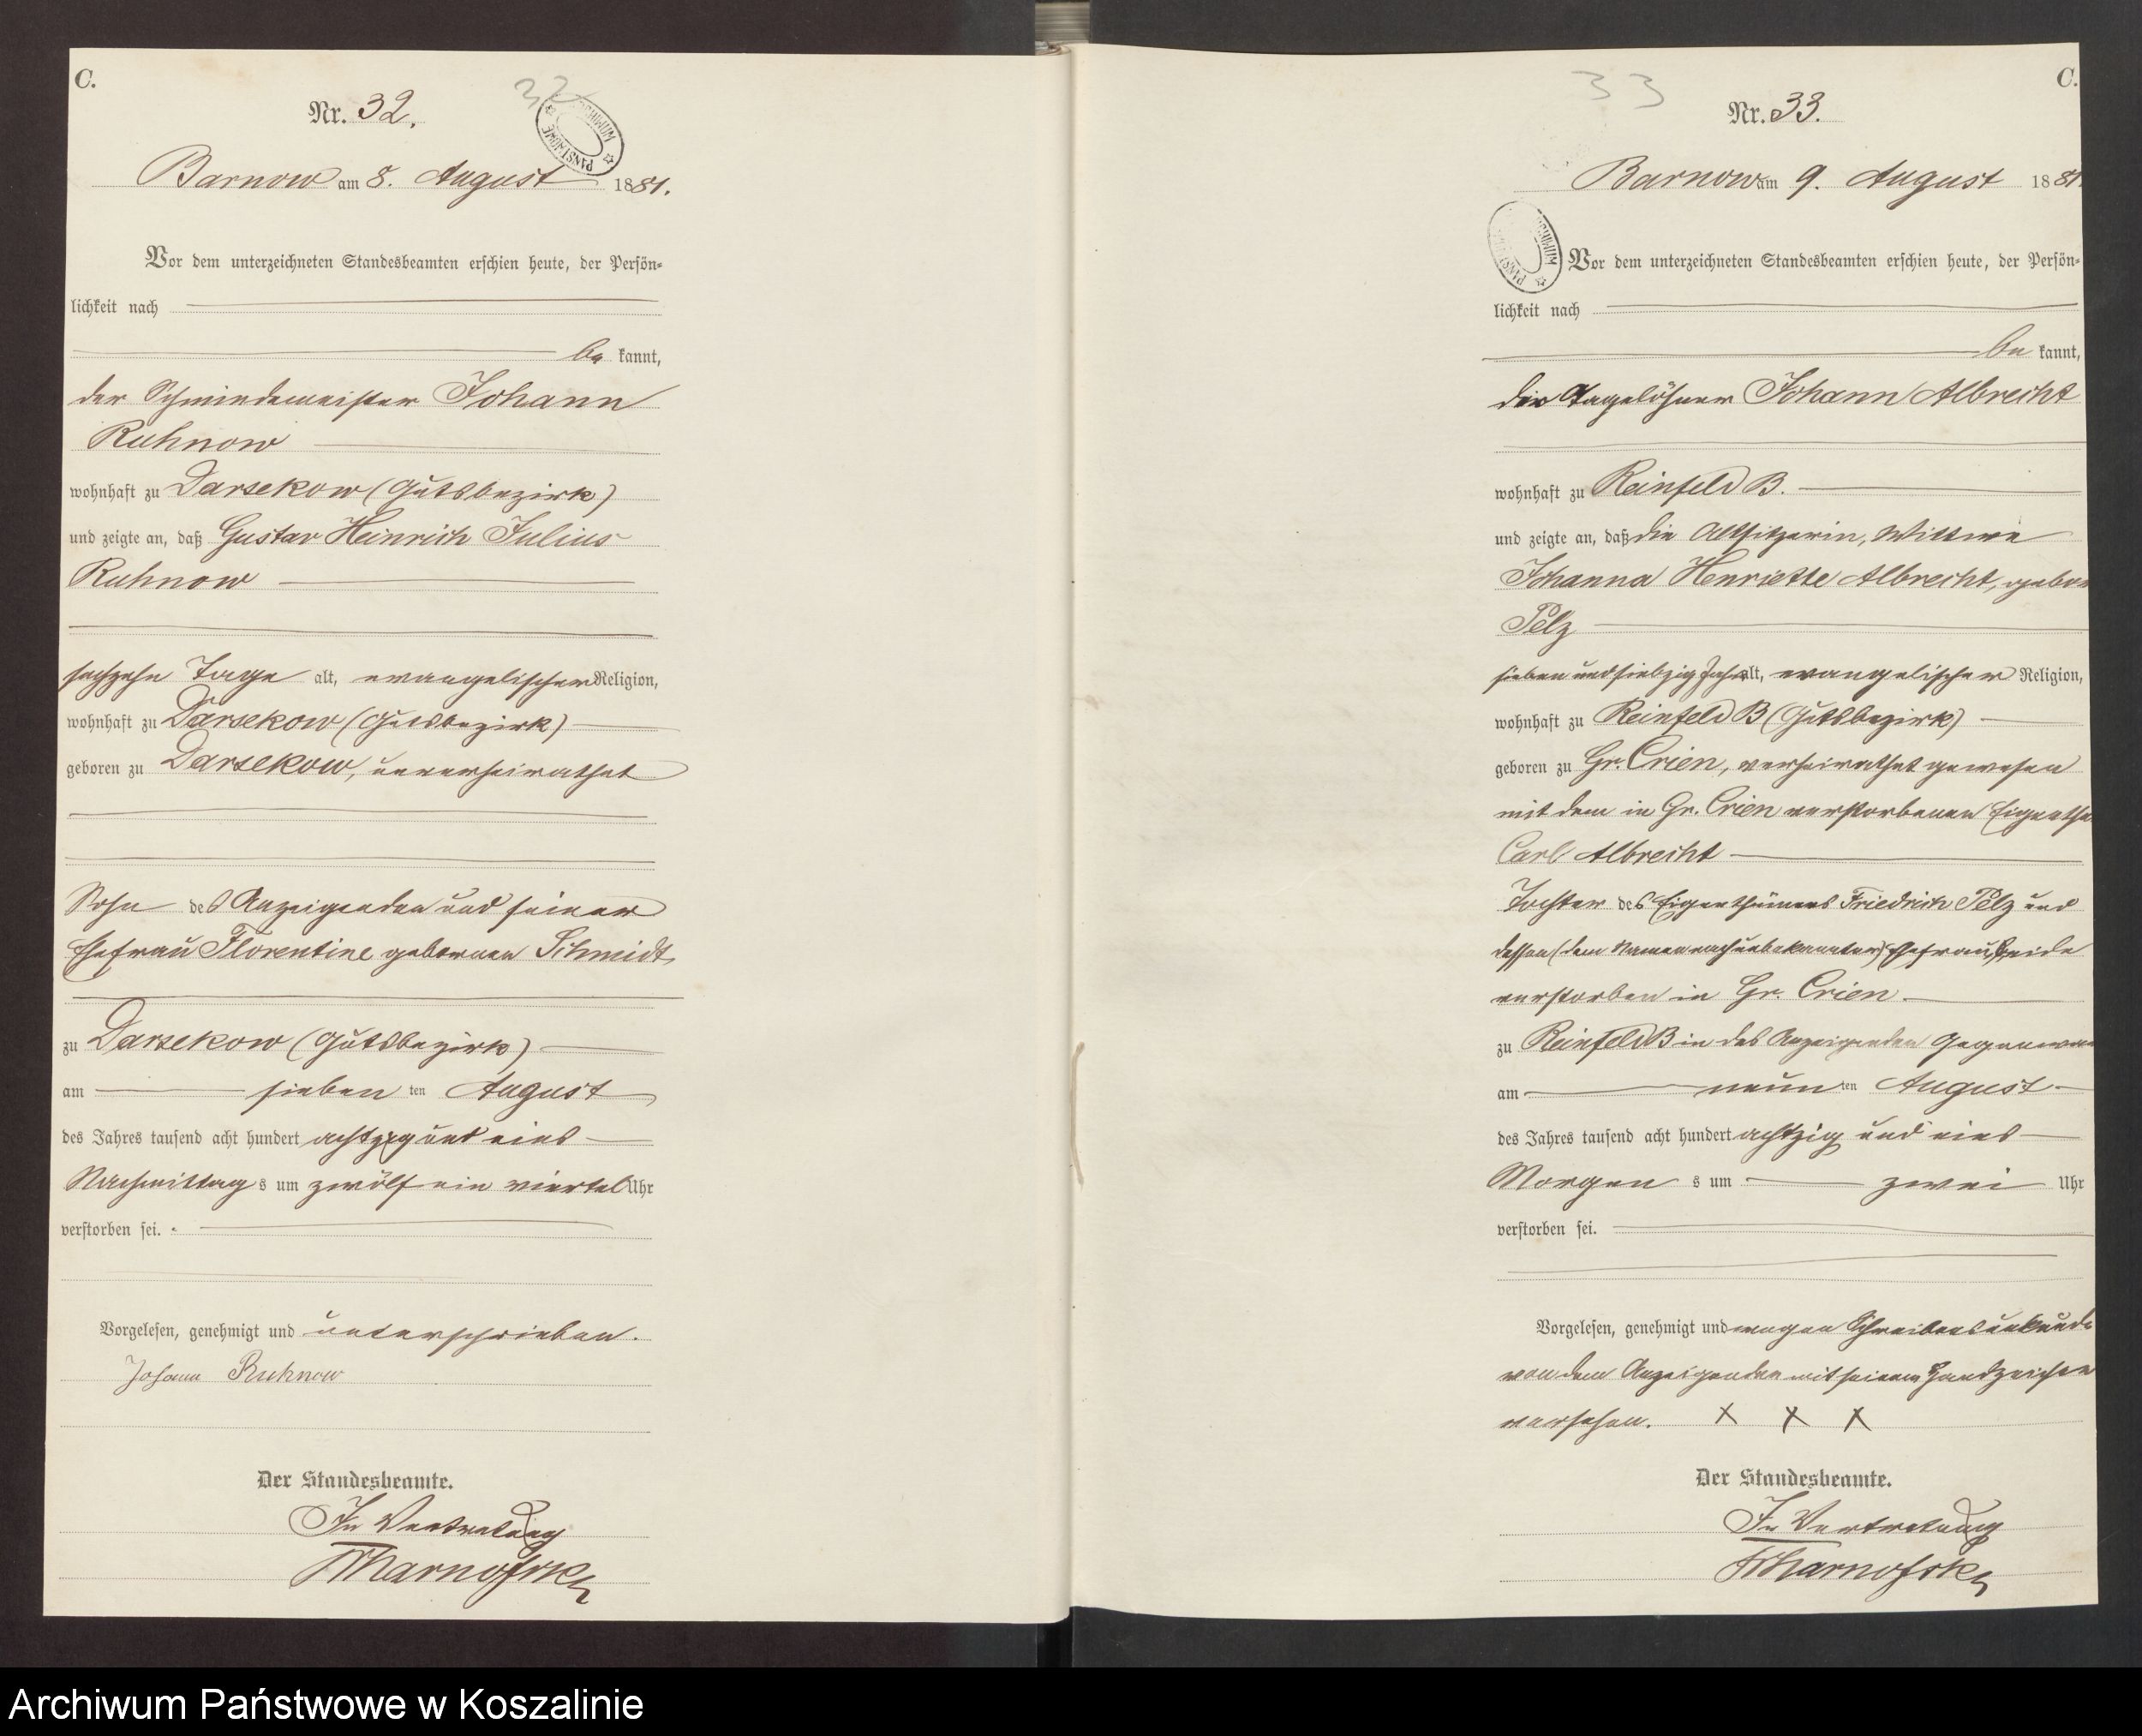 C.
32
Nr. 32.
ARCHIWUM PAŃSTWOWE
Barnow am 8. August 1881.
Vor dem unterzeichneten Standesbeamten erschien heute, der Persön-
lichkeit nach
be kannt,
der Schmiedemeister Johann
Ruhnow
wohnhaft zu Darsekow (Gutsbezirk)
und zeigte an, daß Gustav Heinrich Julius
Ruhnow
sechzehn Tage alt, evangelischer Religion,
wohnhaft zu Darsekow (Gutsbezirk)
geboren zu Darsekow, unverheirathet
Sohn des Anzeigenden und seiner
Ehefrau Florentine gebornen Schmidt,
zu Darsekow (Gutsbezirk)
am sieben ten August
des Jahres tausend acht hundert achtzig und eins
Nachmittag s um zwölf ein viertel Uhr
verstorben sei.
Vorgelesen, genehmigt und unterschrieben.
Johann Ruhnow
Der Standesbeamte.
In Vertretung
C.
33
Nr. 33.
Barnow am 9. August 1881
Vor dem unterzeichneten Standesbeamten erschien heute, der Persön-
lichkeit nach
be kannt,
der Tagelöhner Johann Albrecht
wohnhaft zu Reinfeld B.
und zeigte an, daß die Altsitzerin, Wittwe
Johanna Henriette Albrecht, gebor
Pelz
sieben und siebzig Jahr alt, evangelischer Religion,
wohnhaft zu Reinfeld B (Gutsbezirk)
geboren zu Gr. Crien, verheirathet gewesen
mit dem in Gr. Crien verstorbenen Eigenthü
Carl Albrecht
Tochter des Eigenthümers Friedrich Pelz und
dessen (dem Namen nach unbekannter) Ehefrau, beide
verstorben in Gr. Crien.
zu Reinfeld B in des Anzeigenden Gegenwar
am neun ten August
des Jahres tausend acht hundert achtzig und eins
Morgen s um zwei Uhr
verstorben sei.
Vorgelesen, genehmigt und wegen Schreibensunkunde
von dem Anzeigenden mit seinem Handzeichen
versehen. X X X
Der Standesbeamte.
In Vertretung
Archiwum Państwowe w Koszalinie